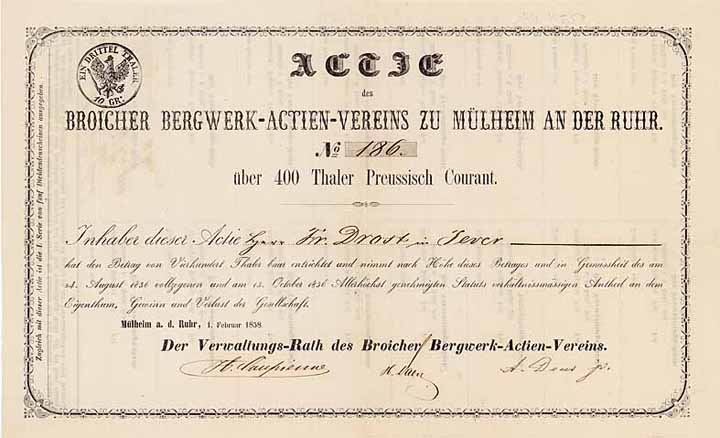 EIN DRITTEL THALER
10 GR:
ACTIE
des
BROICHER BERGWERK-ACTIEN-VEREINS ZU MÜLHEIM AN DER RUHR.
No 186.
über 400 Thaler Preussisch Courant.
Inhaber dieser Actie Herr Fr. Drost in Jever
hat den Betrag von Vierhundert Thaler baar entrichtet und nimmt nach Höhe dieses Betrages und in Gemässheit des am
24. August 1856 vollzogenen und am 13. October 1856 Allerhöchst genehmigten Statuts verhältnissmässigen Antheil an dem
Eigenthum, Gewinn und Verlust der Gesellschaft.
Mülheim a. d. Ruhr, 1. Februar 1858.
Der Verwaltungs-Rath des Broicher Bergwerk-Actien-Vereins.
Zugleich mit dieser Actie ist die I. Serie von fünf Dividendenscheinen ausgegeben.